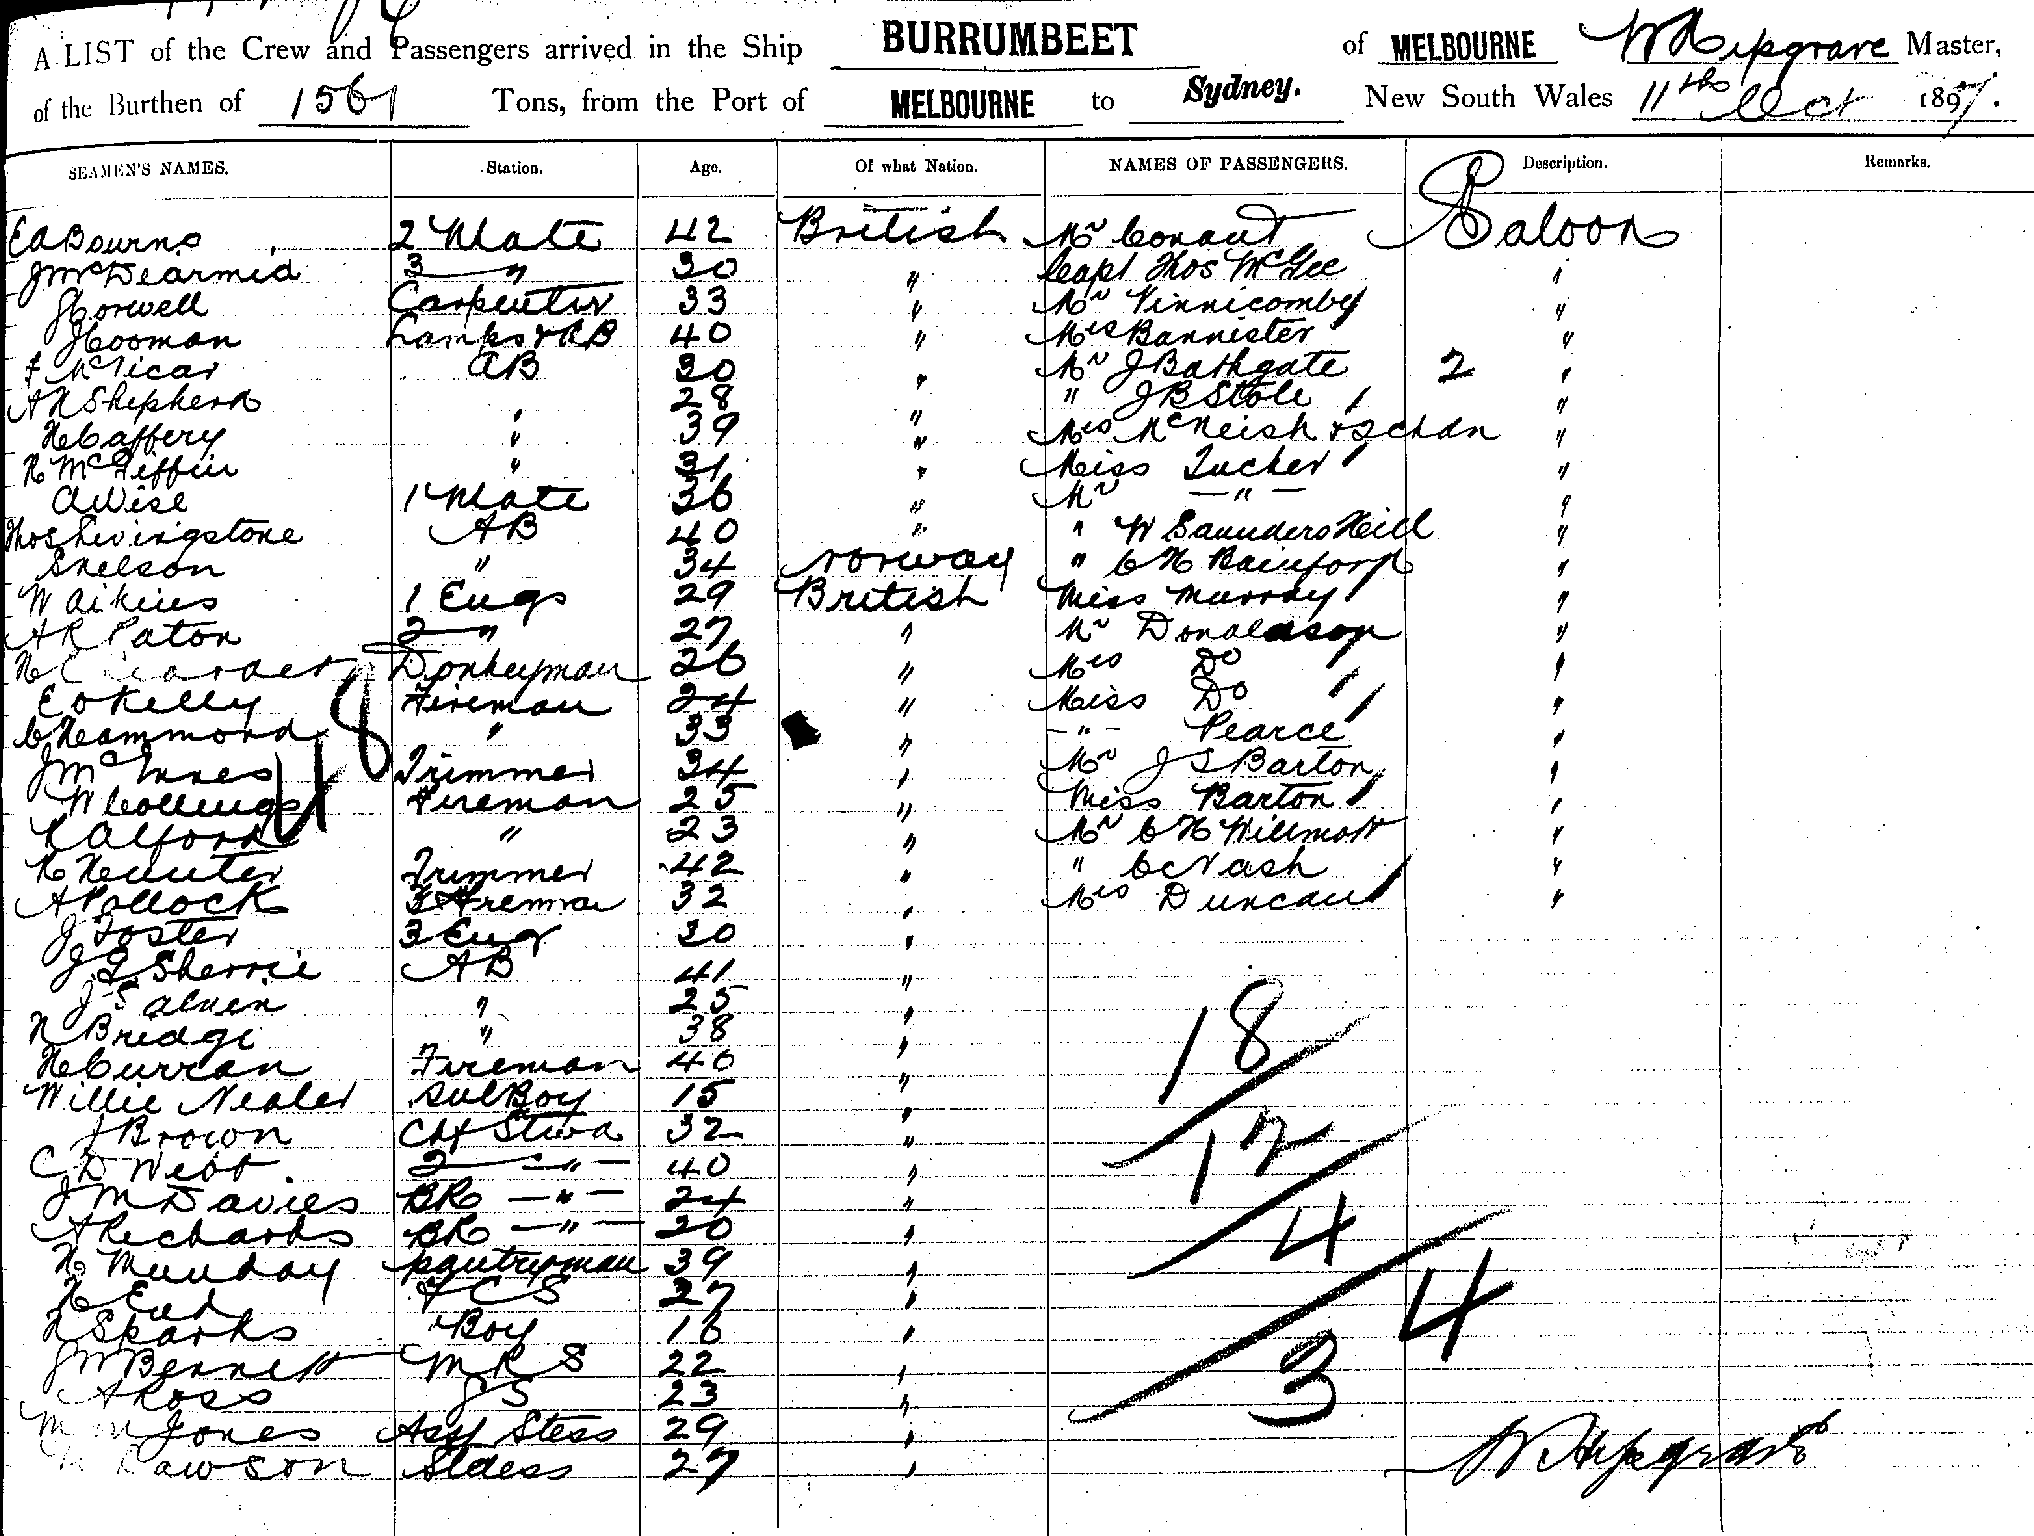 A LIST of the Crew and Passengers arrived in the Ship BURRUMBEET of MELBOURNE W Hipgrave Master,
of the Burthen of 1561 Tons, from the Port of MELBOURNE to Sydney. New South Wales 11th Oct 1897.
SEAMEN'S NAMES. Station. Age. Of what Nation. NAMES OF PASSENGERS. Description. Remarks.
E A Bourne 2 Mate 42 British Mr Conant Saloon
J McDearmid 3 " 30 " Capt Thos McGee "
J Corwell Carpenter 33 " Mr Vinnicomby "
J Cooman Lamps & AB 40 " Mrs Bannister "
F McVicar AB 30 " Mr J Bathgate 2 "
A R Shepherd " 28 " " J B Stole "
H Caffery " 39 " Mrs McNeish & 2 chdn "
R McGiffin " 31 " Miss Tucker "
A Wise 1 Mate 36 " Mr " "
Thos Livingstone AB 40 " " W Saunders Hill "
S Nelson " 34 Norway " C H Rainford "
W Aikins 1 Engr 29 British Miss Murray "
A R Paton 2 " 27 " Mr Donaldson "
H Donkeyman 26 " Mrs Do "
E O Kelly Fireman 24 " Miss Do "
C Hammond " 33 " " Pearce "
J McInnes Trimmer 34 " Mr J S Barton "
W Collings Fireman 25 " Miss Barton "
R Alford " 23 " Mr C H Willmott "
48
R Hunter Trimmer 42 " " C Nash "
A Pollock Fireman 32 " Mrs Duncan "
J Foster 3 Engr 30 "
J L Sherrie AB 41 "
J Salven " 25 "
H Bridge " 38 "
H Curran Fireman 40 "
Willie Nealer Boy 15 "
J Brown Chf Stwd 32 "
C D Webb 2 " 40 "
J M Davies BR " 24 "
A Richards BR " 20 "
H Munday Pantryman 39 "
H End F C S 27 "
H Sparks Boy 16 "
J W Bennett M R S 22 "
A Ross J S 23 "
M M Jones Asst Stess 29 "
Lawson Stdess 27 "
18
12
4
4
3
W Hipgrave